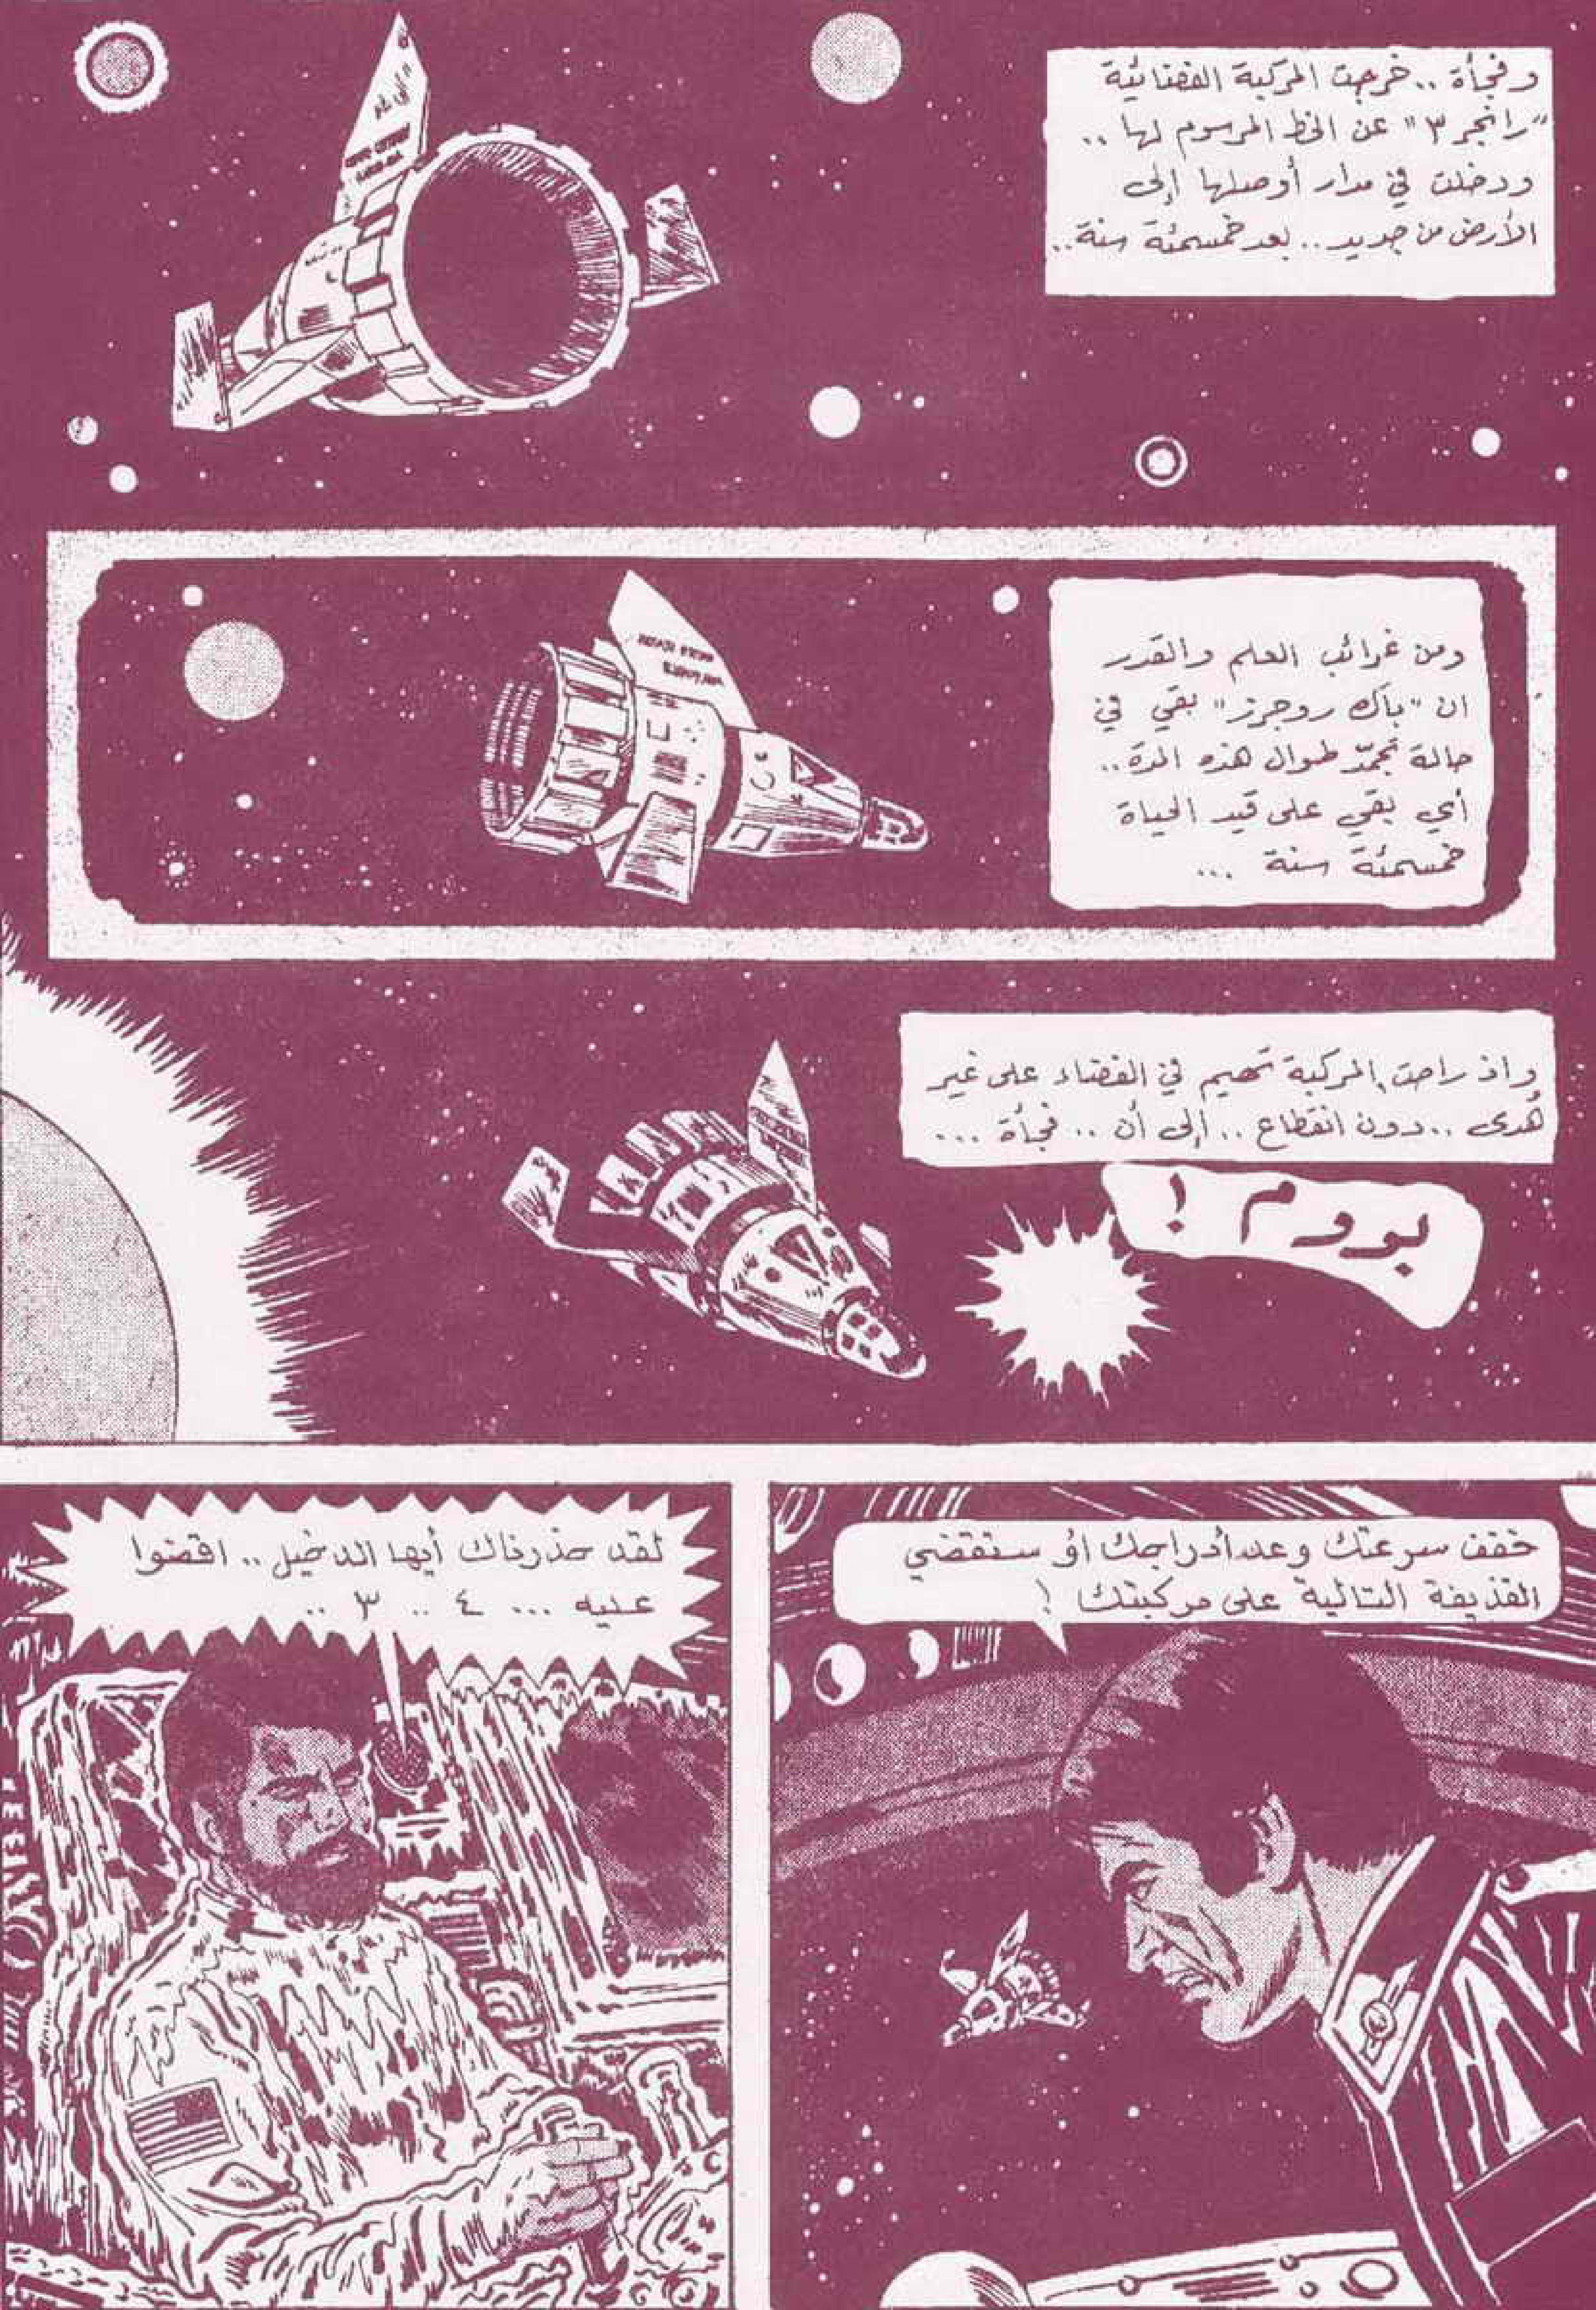 وفجأة .. خرجت المركبة الفضائية
"رانجر ٣" عن الخط المرسوم لها ..
ودخلت في مدار أوصلها إلى
الأرض من جديد .. بعد خمسمئة سنة ..
ومن غرائب العلم والقدر
ان "باك روجرز" بقي في
حالة تجمّد طوال هذه المدة ..
أي بقي على قيد الحياة
خمسمئة سنة ...
واذ راحت المركبة تهيم في الفضاء على غير
هُدى .. دون انقطاع .. إلى أن .. فجأة ...
بووم !
خفف سرعتك وعد أدراجك أو ستقضي
القذيفة التالية على مركبتك !
لقد حذرناك أيها الدخيل .. اقضوا
عليه ... ٤ .. ٣ ..